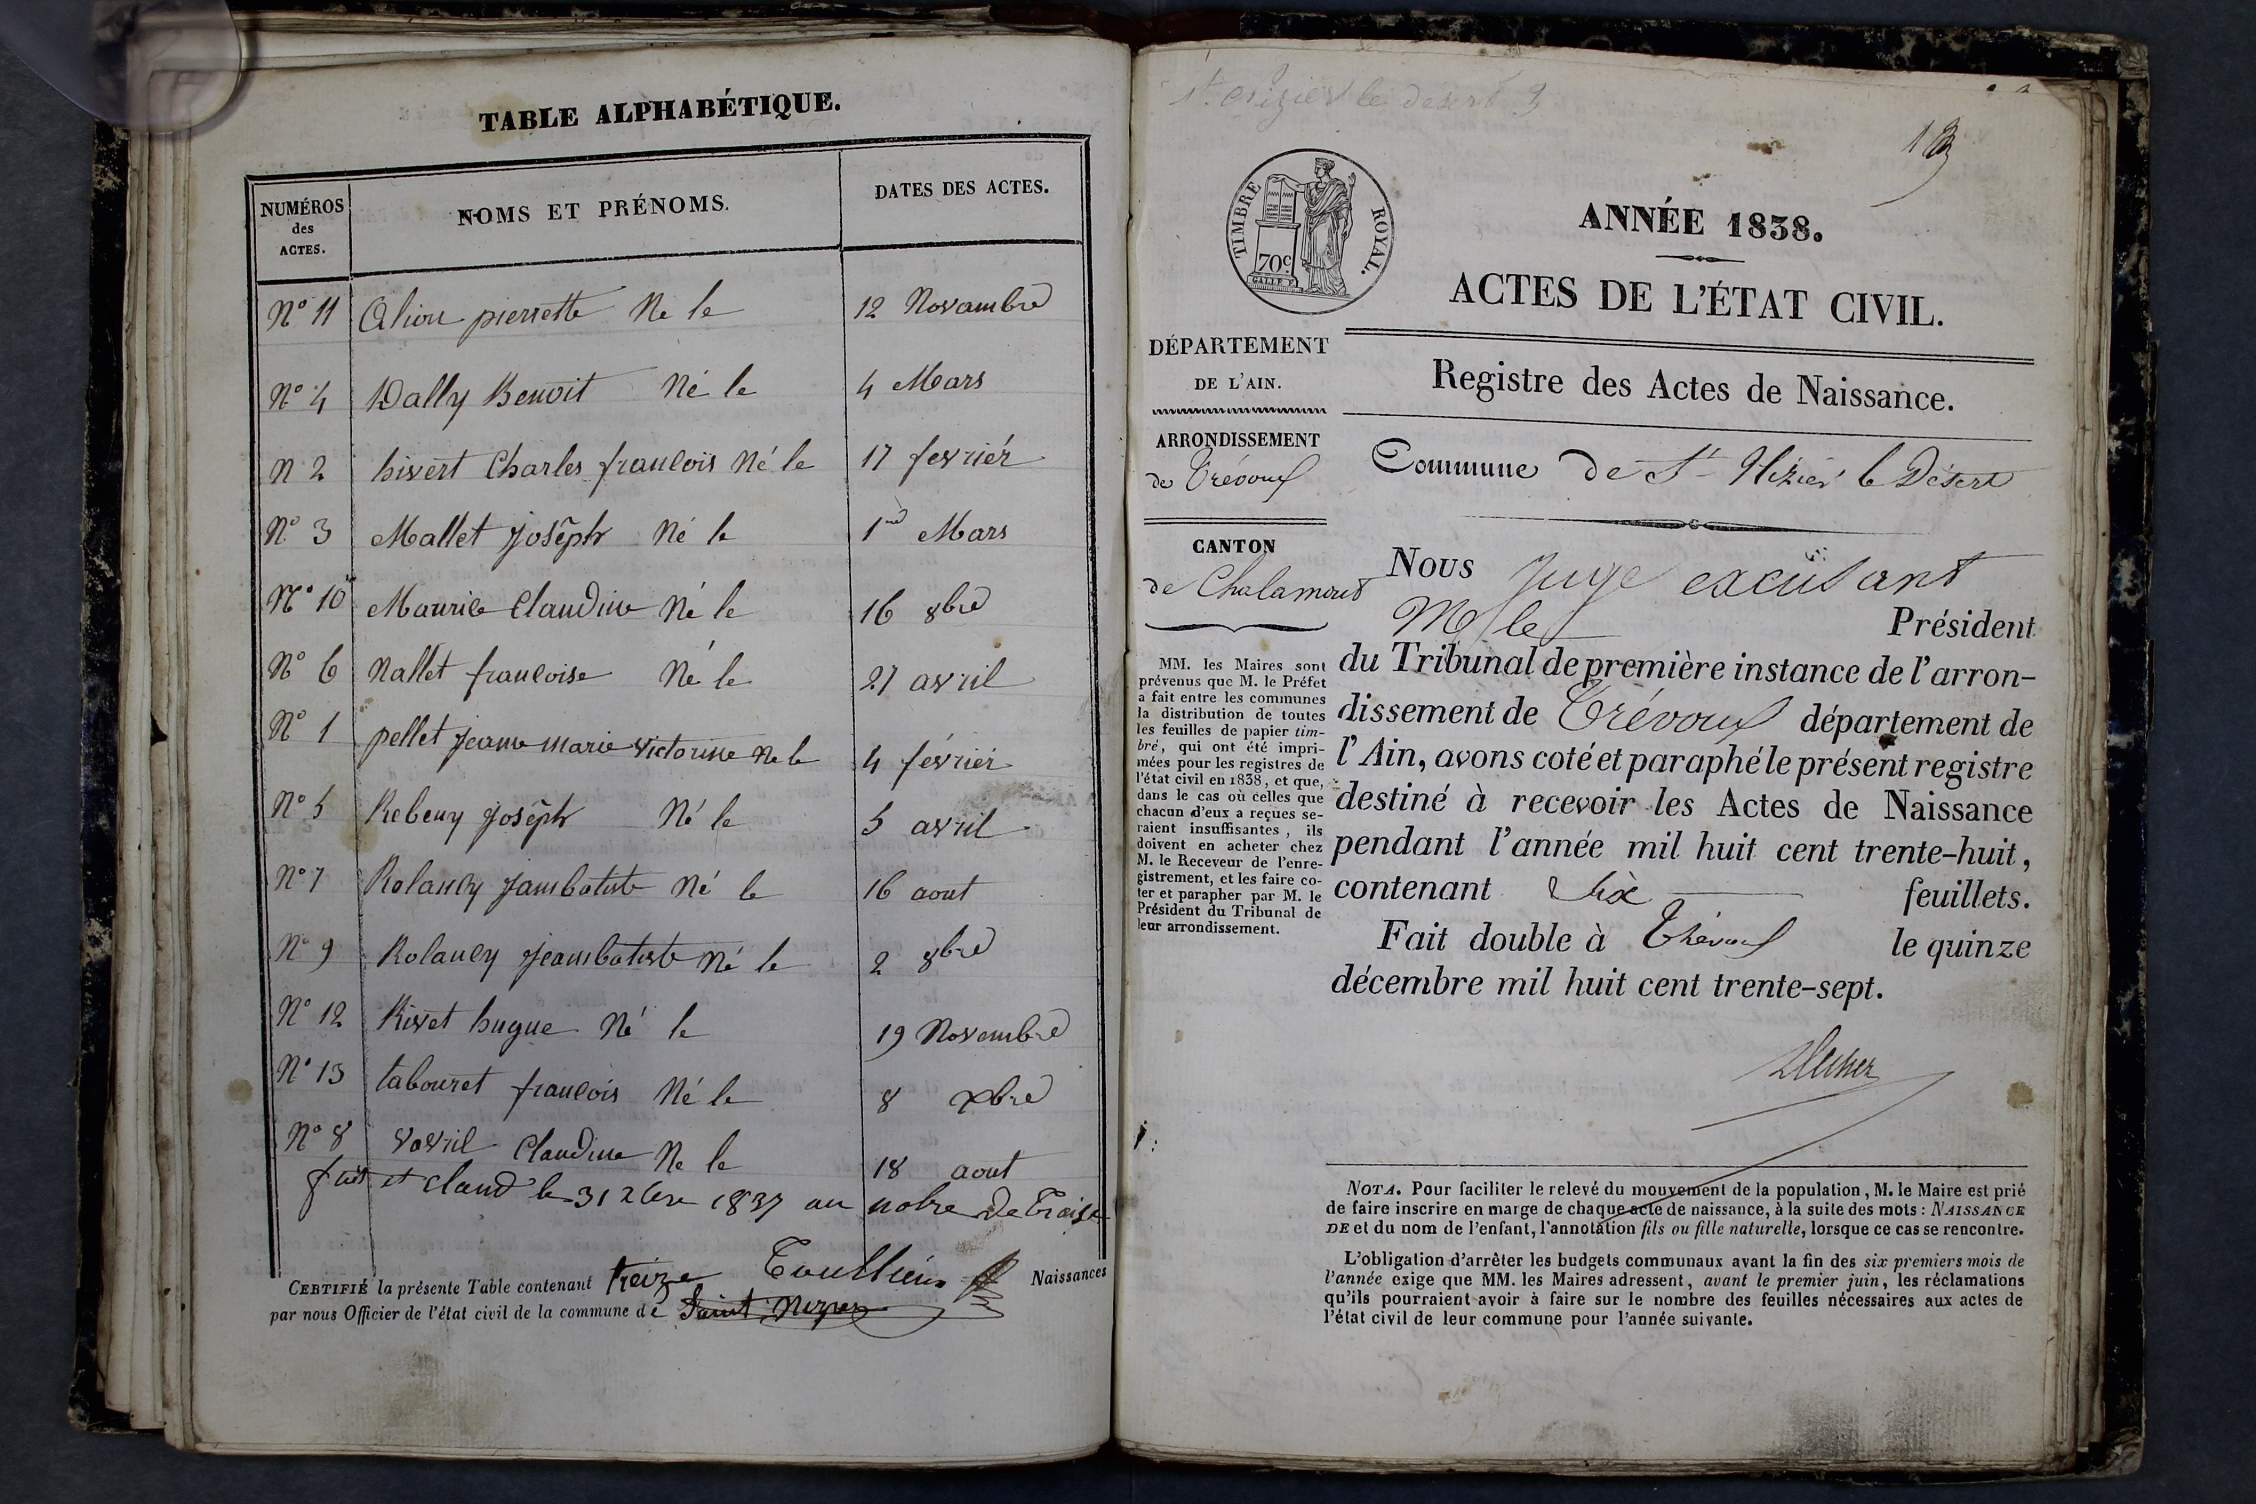 TABLE ALPHABÉTIQUE.
NUMÉROS
des
ACTES.
NOMS ET PRÉNOMS.
DATES DES ACTES.
N° 11 Aliou pierrette Ne le 12 Novambre
N° 4 Dally Benoit Né le 4 Mars
N 2 hivert Charles francois Né le 17 fevriér
N° 3 Mallet Joséph Né le 1er Mars
N° 10 Maurice Claudine Né le 16 8bre
N° 6 Nallet francoise Né le 27 avril
N° 1 pellet Jeanne marie victorine Ne le 4 févriér
N° 5 Rebeuy Joséph Né le 5 avril
N° 7 Rolandy Jambatiste Né le 16 aout
N° 9 Rolandy Jeambatiste Né le 2 8bre
N° 12 Rivet hugue Né le 19 Novembre
N° 13 tabouret francois Né le 8 Xbre
N° 8 vovril Claudine Ne le 18 aout
fait et claud le 31 xbre 1837 au nobre De Traise
CERTIFIÉ la présente Table contenant treize Naissances
par nous Officier de l'état civil de la commune de Saint Nizier
St Nizier le desert 9
13
TIMBRE ROYAL.
70c
GALLE F.
ANNÉE 1838.
ACTES DE L'ÉTAT CIVIL.
Registre des Actes de Naissance.
Commune de St Nizier le Désert
DÉPARTEMENT
DE L'AIN.
ARRONDISSEMENT
de Trévoux
CANTON
de Chalamont
MM. les Maires sont
prévenus que M. le Préfet
a fait entre les communes
la distribution de toutes
les feuilles de papier tim-
bré, qui ont été impri-
mées pour les registres de
l'état civil en 1838, et que,
dans le cas où celles que
chacun d'eux a reçues se-
raient insuffisantes, ils
doivent en acheter chez
M. le Receveur de l'enre-
gistrement, et les faire co-
ter et parapher par M. le
Président du Tribunal de
leur arrondissement.
Nous Juge excusant
Mr le Président
du Tribunal de première instance de l'arron-
dissement de Trévoux département de
l'Ain, avons coté et paraphé le présent registre
destiné à recevoir les Actes de Naissance
pendant l'année mil huit cent trente-huit,
contenant six feuillets.
Fait double à Trévoux le quinze
décembre mil huit cent trente-sept.
NOTA. Pour faciliter le relevé du mouvement de la population, M. le Maire est prié
de faire inscrire en marge de chaque acte de naissance, à la suite des mots : NAISSANCE
DE et du nom de l'enfant, l'annotation fils ou fille naturelle, lorsque ce cas se rencontre.
L'obligation d'arrêter les budgets communaux avant la fin des six premiers mois de
l'année exige que MM. les Maires adressent, avant le premier juin, les réclamations
qu'ils pourraient avoir à faire sur le nombre des feuilles nécessaires aux actes de
l'état civil de leur commune pour l'année suivante.